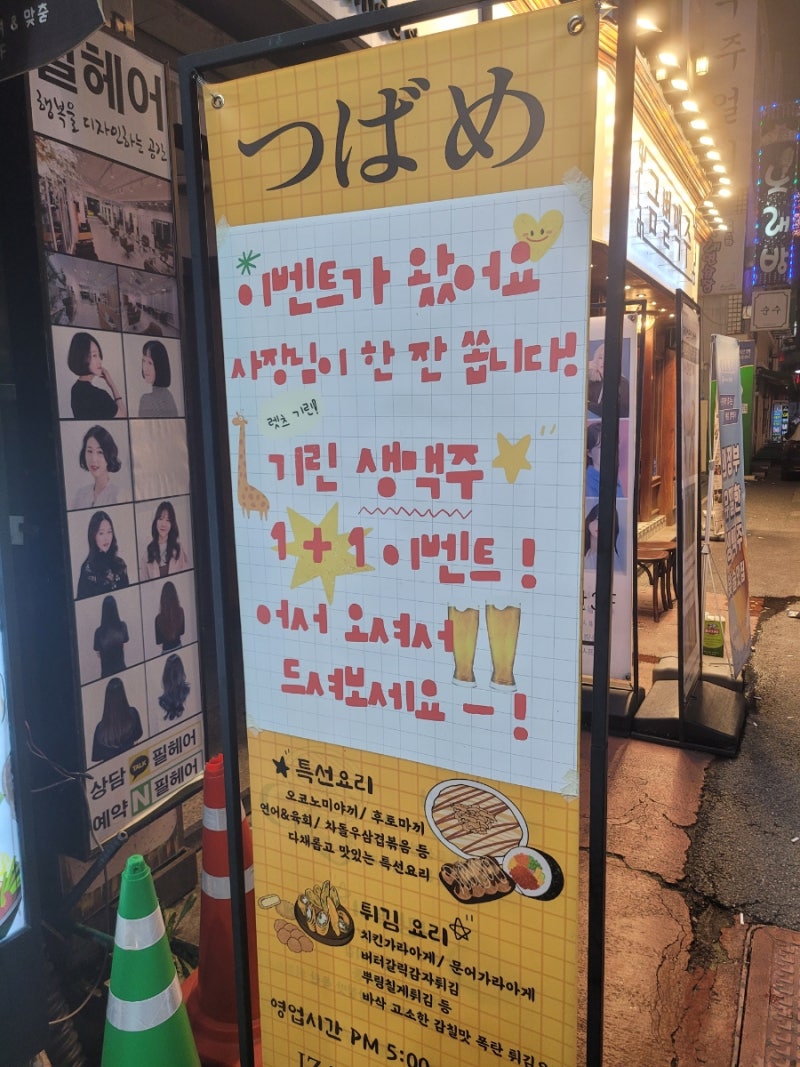 & 맞춤
필헤어
행복을 디자인하는 공간
상담 TALK 필헤어
예약 N 필헤어
つばめ
이벤트가 왔어요
사장님이 한 잔 쏩니다!
렛츠 기린!
기린 생맥주
1+1 이벤트!
어서 오셔서
드셔보세요 -!
특선요리
오코노미야끼/ 후토마끼
연어&육회/ 차돌우삼겹볶음 등
다채롭고 맛있는 특선요리
튀김 요리
치킨가라아게/ 문어가라아게
버터갈릭감자튀김
뿌링칠게튀김 등
바삭 고소한 감칠맛 폭탄 튀김요
영업시간 PM 5:00
IZA
금별맥주
노래방